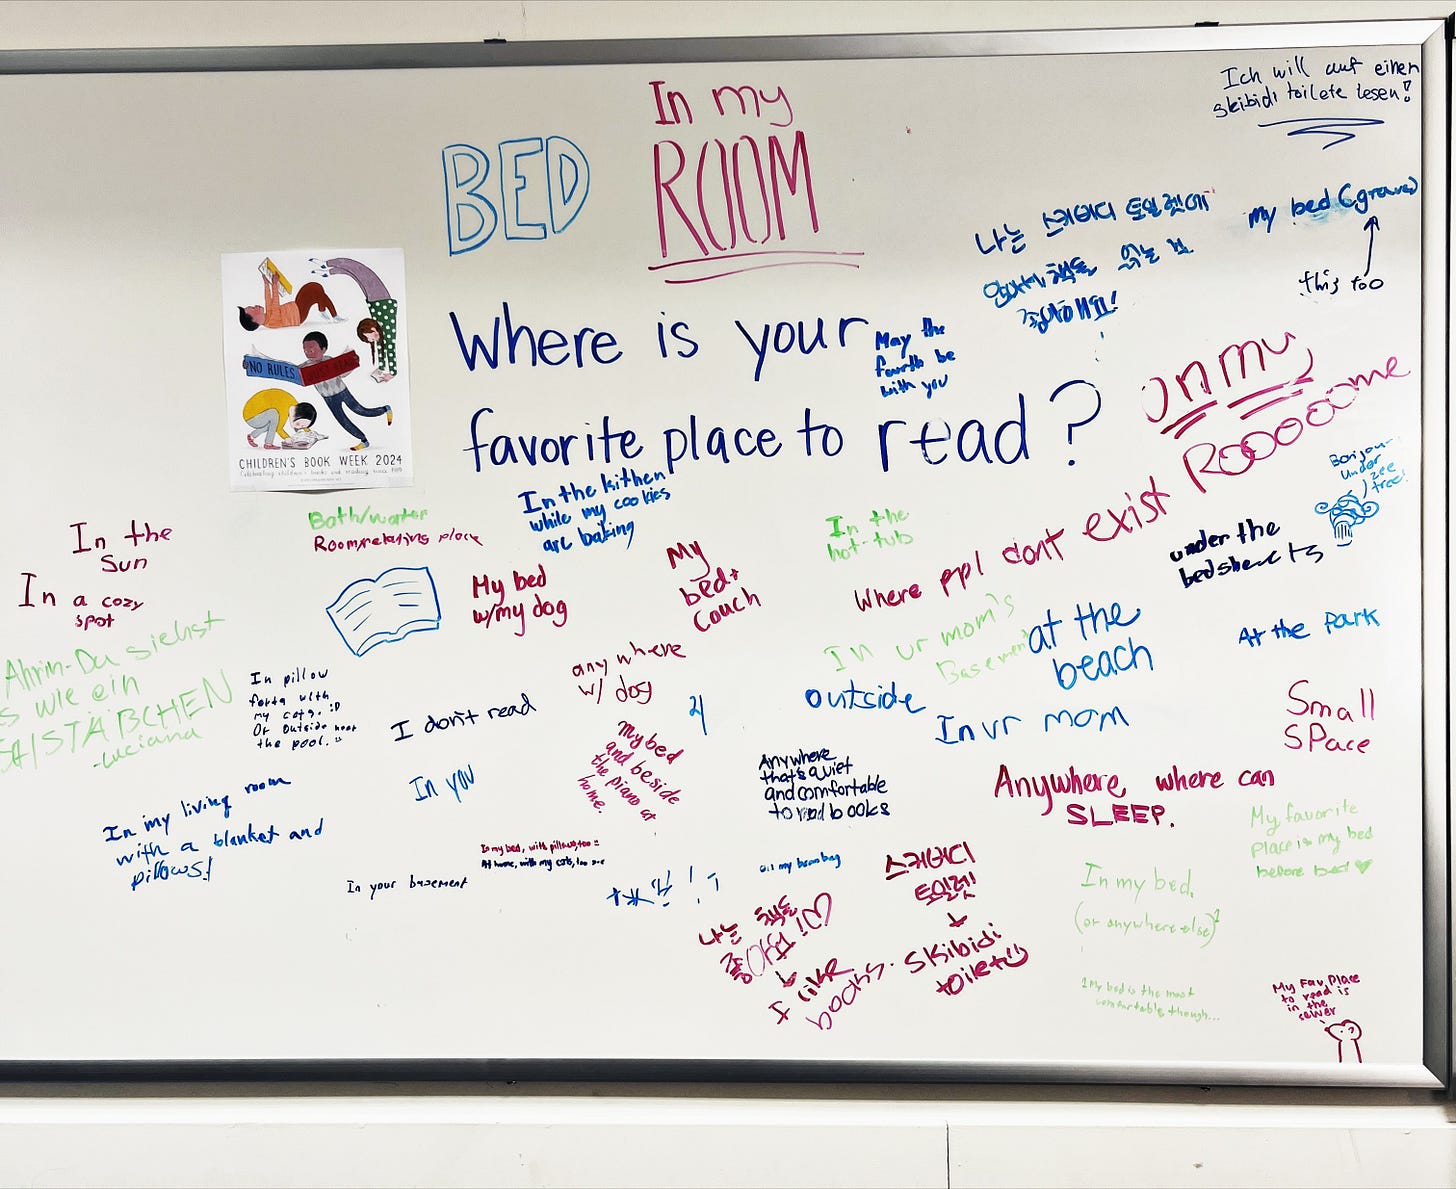 In my
ROOM
BED
Ich will auf einen
skibidi toilete lesen!
나는 스키비디 토일렛에
앉아서 책을 읽는 것
좋아해요!
my bed (ground)
this too
Where is your
favorite place to read?
May the
fourth be
with you
NO RULES.
CHILDREN'S BOOK WEEK 2024
Celebrating children's books and reading since 1919
In my
Roooooome
Bonjour
under
zee
tree!
In the kithen
while my cookies
are baking
Bath/water
Room,relating place
In the
hot-tub
Where ppl dont exist
under the
bedsheets
In the
Sun
In a cozy
spot
My bed
w/my dog
My
bed+
Couch
In ur mom's
Basement
at the
beach
At the Park
Ahrin-Du siehst
s wie ein
STÄBCHEN
-Luciana
In pillow
forts with
my cats. :D
Or outside near
the pool.
I don't read
anywhere
w/ dog
outside
In ur mom
Small
SPace
my bed
and beside
the piano at
home.
Anywhere
that's quiet
and comfortable
to read books
Anywhere where can
SLEEP.
In you
In my living room
with a blanket and
pillows!
In my bed, with pillows,too
At home, with my cats, too
In your basement
on my bean bag
My favorite
Place is my bed
before bed ♥
In my bed.
(or anywhere else)¹
¹My bed is the most
comfortable though...
스키비디
토일렛
↓
skibidi
toilet
나는 책을
좋아해!♡
↓
I like
books.
My Fav. Place
to read is
in the
sewer